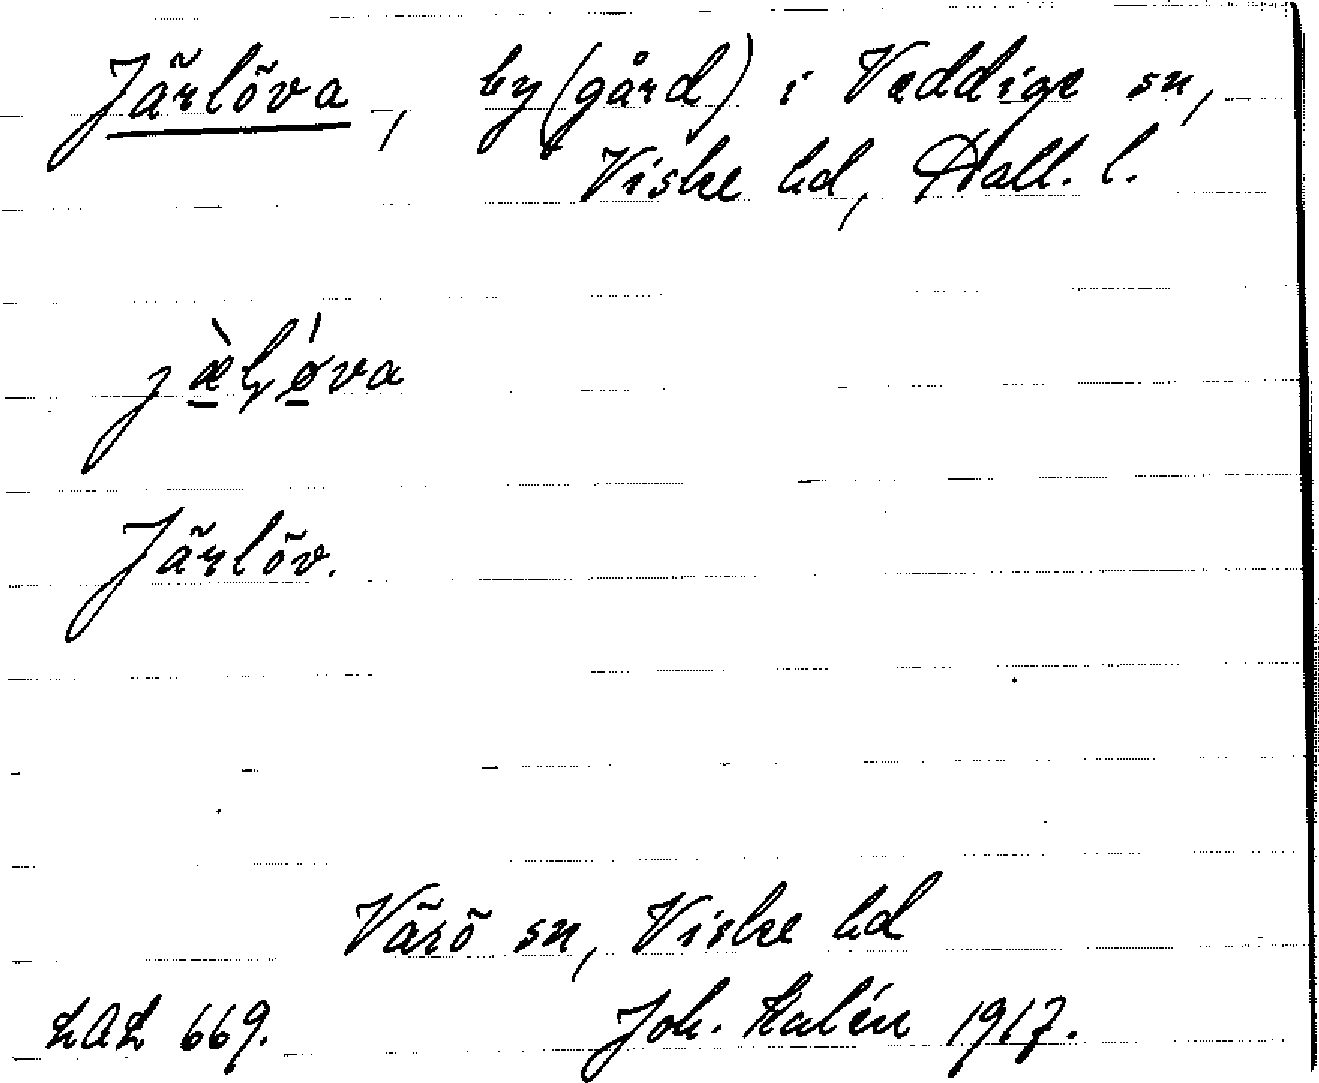 Järlöva, by (gård) i Veddige sn,
Viske hd, Hall. l.
jæ̀lǿva
Järlöv.
Värö sn, Viske hd
LAL 669. Joh. Kalén 1917.